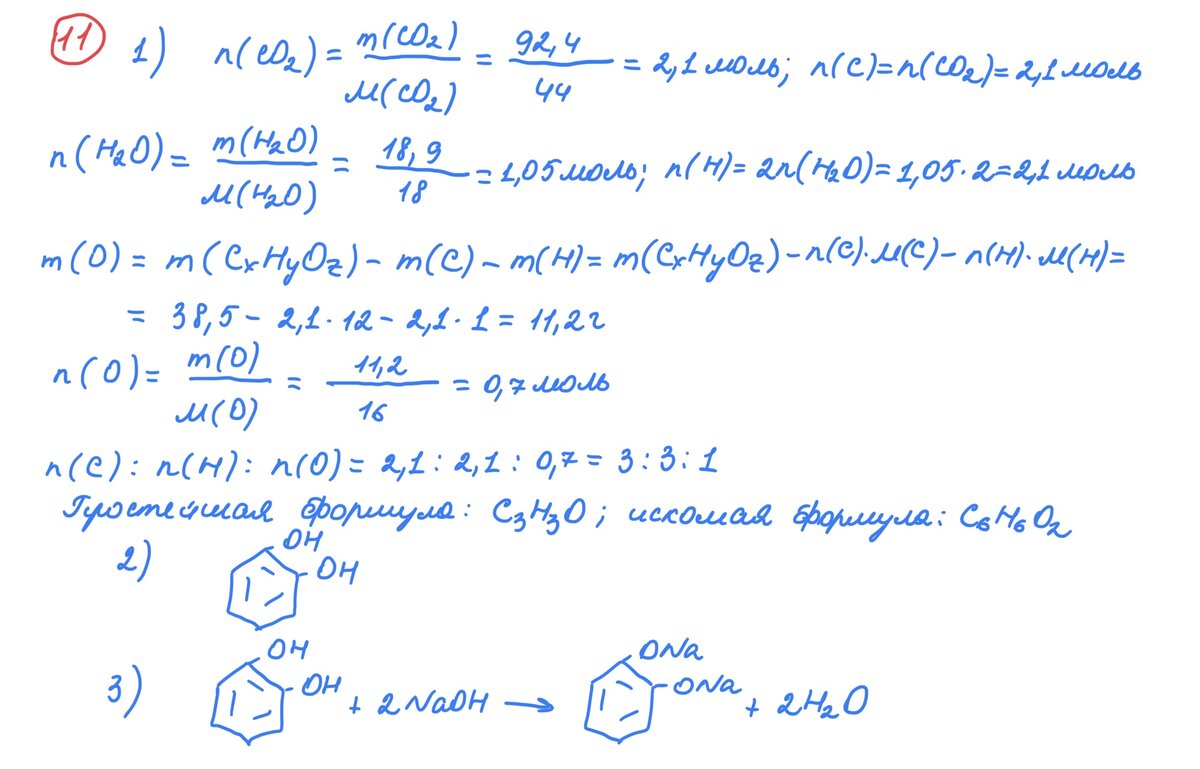 11 1) n(CO₂) = m(CO₂)/M(CO₂) = 92,4/44 = 2,1 моль; n(C)=n(CO₂)=2,1 моль
n(H₂O) = m(H₂O)/M(H₂O) = 18,9/18 = 1,05 моль; n(H)= 2n(H₂O)= 1,05·2=2,1 моль
m(O) = m(CxHyOz) – m(C) – m(H)= m(CxHyOz) – n(C)·M(C) – n(H)·M(H)=
= 38,5 – 2,1·12 – 2,1·1 = 11,2 г
n(O)= m(O)/M(O) = 11,2/16 = 0,7 моль
n(C) : n(H) : n(O) = 2,1 : 2,1 : 0,7 = 3 : 3 : 1
Простейшая формула: C₃H₃O ; искомая формула: C₆H₆O₂
2) OH
OH
3) OH OH + 2NaOH → ONa ONa + 2H₂O